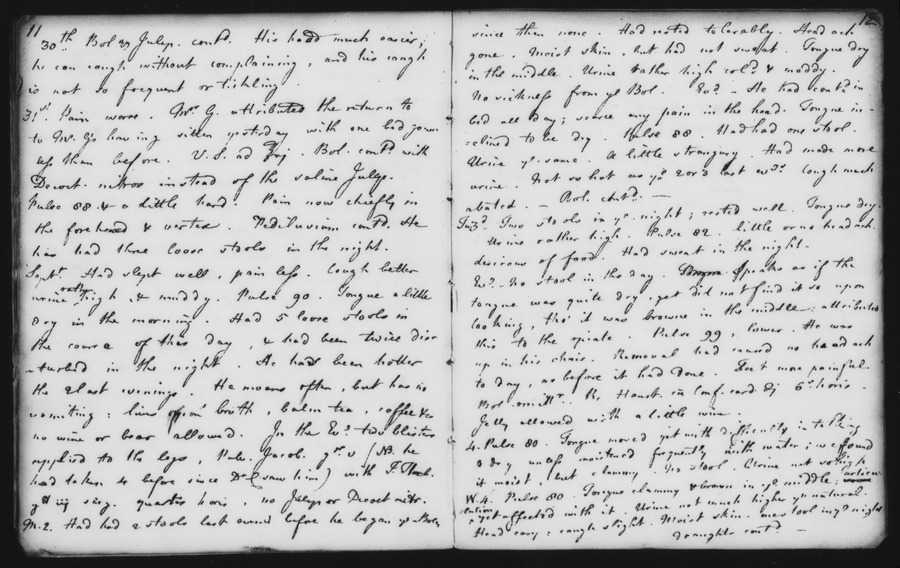 11
30th Bol & Julep. contd. His head much easier;
he can cough without complaining, and his cough
is not so frequent or tickling.
31st. Pain worse. Mr G. attributed the return to
to Mr. G's having sitten yesterday with one bed gown
less than before. V.S. ad ℥vj. Bol. contd. with
Decoct. nitros instead of the saline Julep.
Pulse 88 & a little hard. Pain now chiefly in
the forehead & vertex. Pediluvium contd. He
has had three loose stools in the night.
Sept. Had slept well, pain less. Cough better
urine rather high, & muddy. Pulse 90. Tongue a little
dry in the morning. Had 5 loose stools in
the course of this day, & had been twice dis-
-turbed in the night. He had been hotter
the 2 last evenings. He moans often, but has no
vomiting: lives upon broth, balm tea, coffee &c
no wine or beer allowed. In the Evg. two blisters
applied to the legs, Pulv. Jacob. gr. v (NB. he
had taken 4 before since Dr saw him) with
sing. quartis horis. no Julep or Decoct nitr.
M. 2. Had had 2 stools last evening before he began ye Bols,
12
since then none. Had rested tolerably. Head ach
gone. Moist skin, but had not sweat. Tongue dry
in the middle. Urine rather high cold. & muddy.
No sickness from ye Bol. Evg. - He had contd. in
bed all day; scarce any pain in the head. Tongue in-
-clined to be dry. Pulse 88. Had had one stool.
Urine ye same. A little strangury. Had made more
urine. Not so hot as ye 2 or 3 last evgs. Cough much
abated. - Bol. contd. -
Tu. 3d. Two stools in ye night; rested well. Tongue dry.
Urine rather high. Pulse 82. little or no head ach.
desirous of food. Had sweat in the night.
Evg. No stool in the day. Speaks as if the
tongue was quite dry, yet did not find it so upon
looking, tho' it was browne in the middle: attributed
this to the opiate. Pulse 99, lower. He was
up in his chair. Removal had caused no head ach
to day, as before it had done. Feet more painful.
Bol. omittr. R. Haust. Conf. card 6s. horis.
Jelly allowed with a little wine.
4. Pulse 80. Tongue moved yet with difficulty in talking
& dry unless moistened frequently with water; we found
it moist, but clammy. No stool. Urine not so high
W. 4. Pulse 80. Tongue clammy & brown in ye middle;
& yet affected with it. Urine not much higher yn natural.
Head easy: cough slight. Moist skin. one stool in ye night
Draughts contd. -